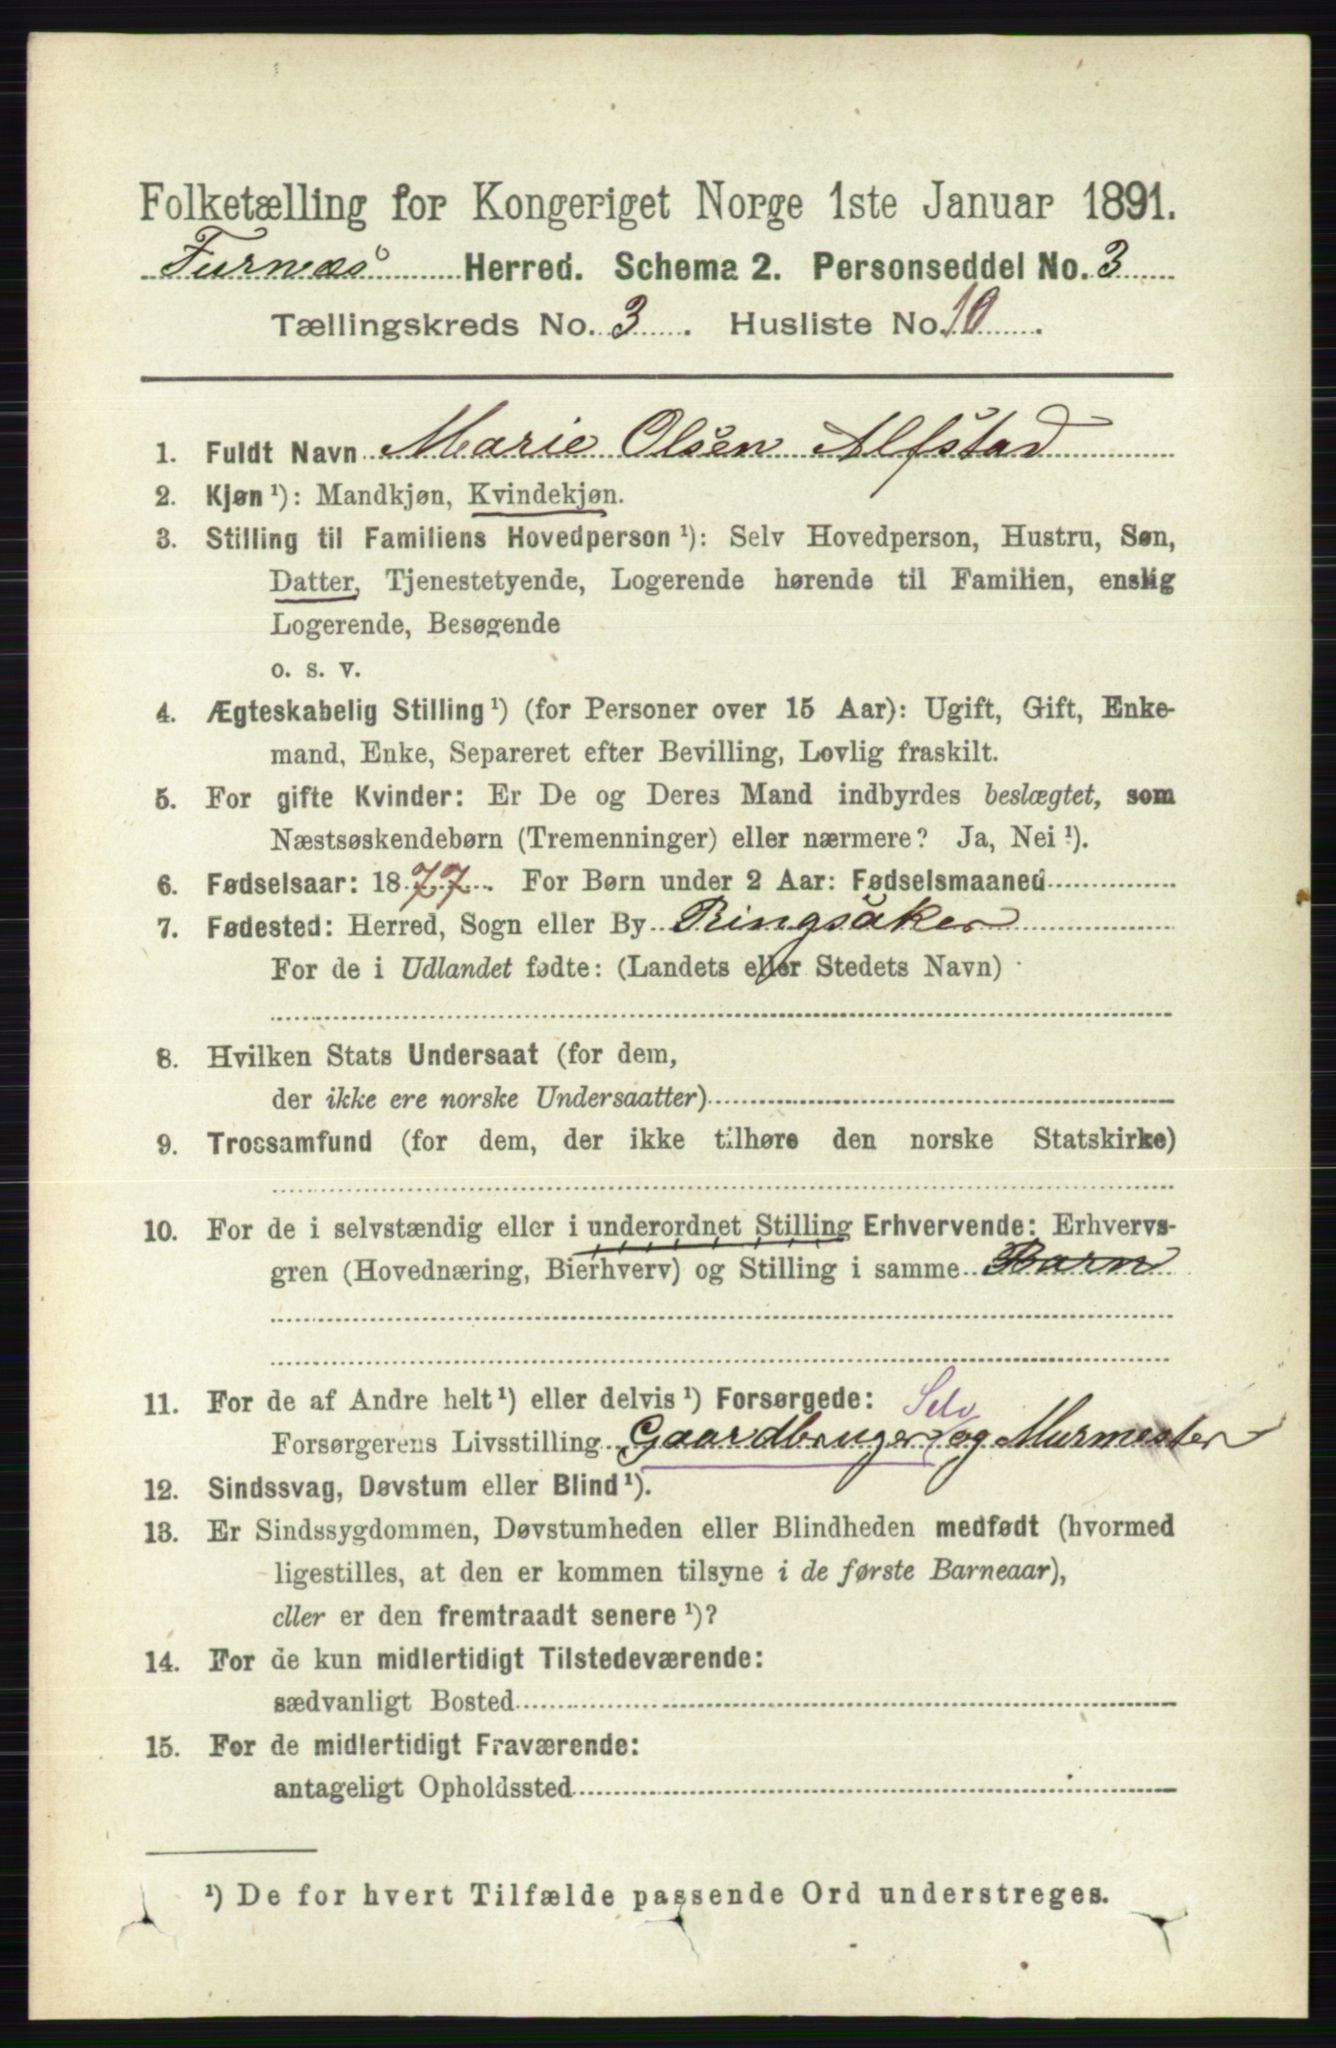 Folketælling for Kongeriget Norge 1ste Januar 1891.
Furnæs Herred. Schema 2. Personseddel No. 3
Tællingskreds No. 3. Husliste No. 10.
1. Fuldt Navn Marie Olsen Alfstad
2. Kjøn ¹): Mandkjøn, Kvindekjøn.
3. Stilling til Familiens Hovedperson ¹): Selv Hovedperson, Hustru, Søn,
Datter, Tjenestetyende, Logerende hørende til Familien, enslig
Logerende, Besøgende
o. s. v.
4. Ægteskabelig Stilling ¹) (for Personer over 15 Aar): Ugift, Gift, Enke-
mand, Enke, Separeret efter Bevilling, Lovlig fraskilt.
5. For gifte Kvinder: Er De og Deres Mand indbyrdes beslægtet, som
Næstsøskendebørn (Tremenninger) eller nærmere? Ja, Nei ¹).
6. Fødselsaar: 1877. For Børn under 2 Aar: Fødselsmaaned
7. Fødested: Herred, Sogn eller By Ringsaker
For de i Udlandet fødte: (Landets eller Stedets Navn)
8. Hvilken Stats Undersaat (for dem,
der ikke ere norske Undersaatter)
9. Trossamfund (for dem, der ikke tilhøre den norske Statskirke)
10. For de i selvstændig eller i underordnet Stilling Erhvervende: Erhvervs-
gren (Hovednæring, Bierhverv) og Stilling i samme Barn
11. For de af Andre helt ¹) eller delvis ¹) Forsørgede: Selv
Forsørgerens Livsstilling Gaardbruger og Murmester
12. Sindssvag, Døvstum eller Blind ¹).
13. Er Sindssygdommen, Døvstumheden eller Blindheden medfødt (hvormed
ligestilles, at den er kommen tilsyne i de første Barneaar),
eller er den fremtraadt senere ¹)?
14. For de kun midlertidigt Tilstedeværende:
sædvanligt Bosted
15. For de midlertidigt Fraværende:
antageligt Opholdssted
¹) De for hvert Tilfælde passende Ord understreges.